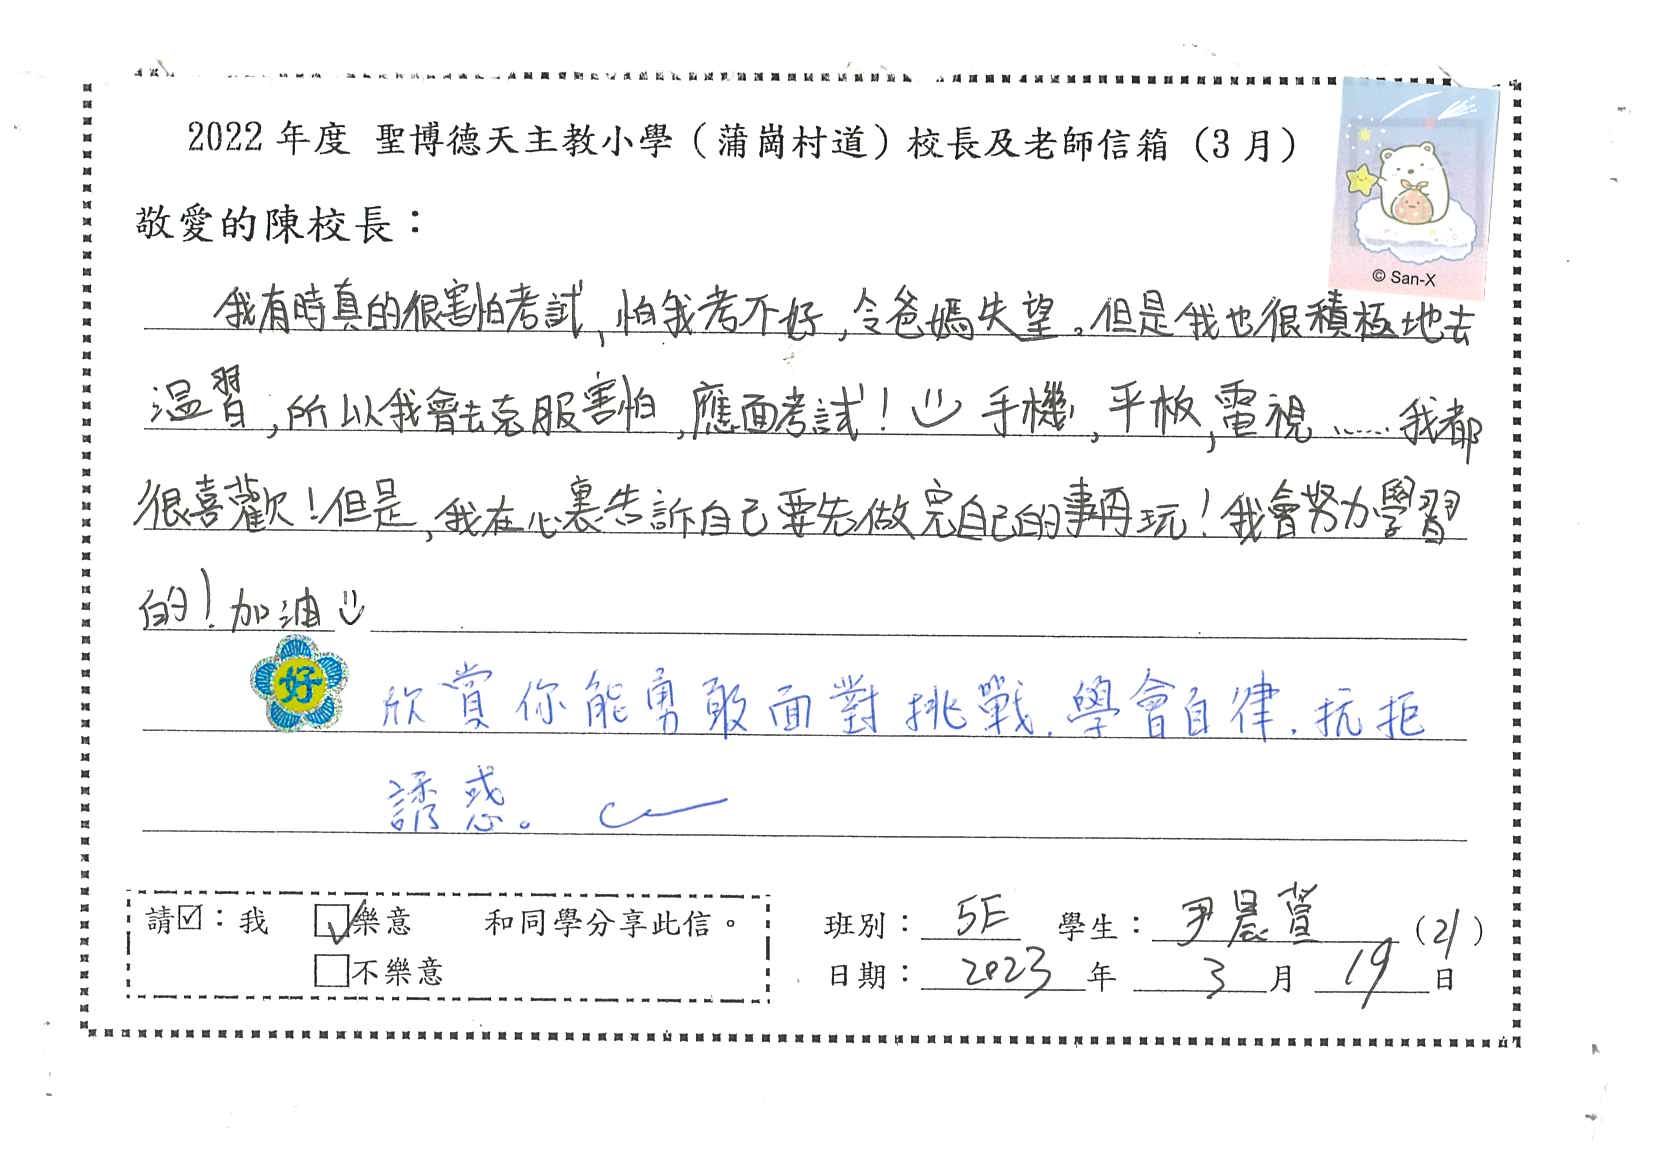 2022 年度 聖博德天主教小學（蒲崗村道）校長及老師信箱（3 月）
© San-X
敬愛的陳校長：
我有時真的很害怕考試，怕我考不好，令爸媽失望。但是我也很積極地去
溫習，所以我會去克服害怕，應面考試！手機，平板，電視……我都
很喜歡！但是，我在心裏告訴自己要先做完自己的事再玩！我會努力學習
的！加油
好
欣賞你能勇敢面對挑戰．學會自律．抗拒
誘惑。
請☑：我 ☑樂意 和同學分享此信。
□不樂意
班別：5E 學生：尹晨萱（21）
日期：2023年3月19日